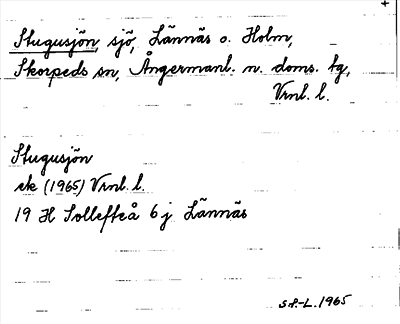 Stugusjön, sjö, Lännäs o. Holm,
Skorpeds sn, Ångermanl. n. doms. tg,
Vrnl. l.
Stugusjön
ek (1965) Vrnl. l.
19 H Sollefteå 6 j Lännäs
S.P.-L. 1965